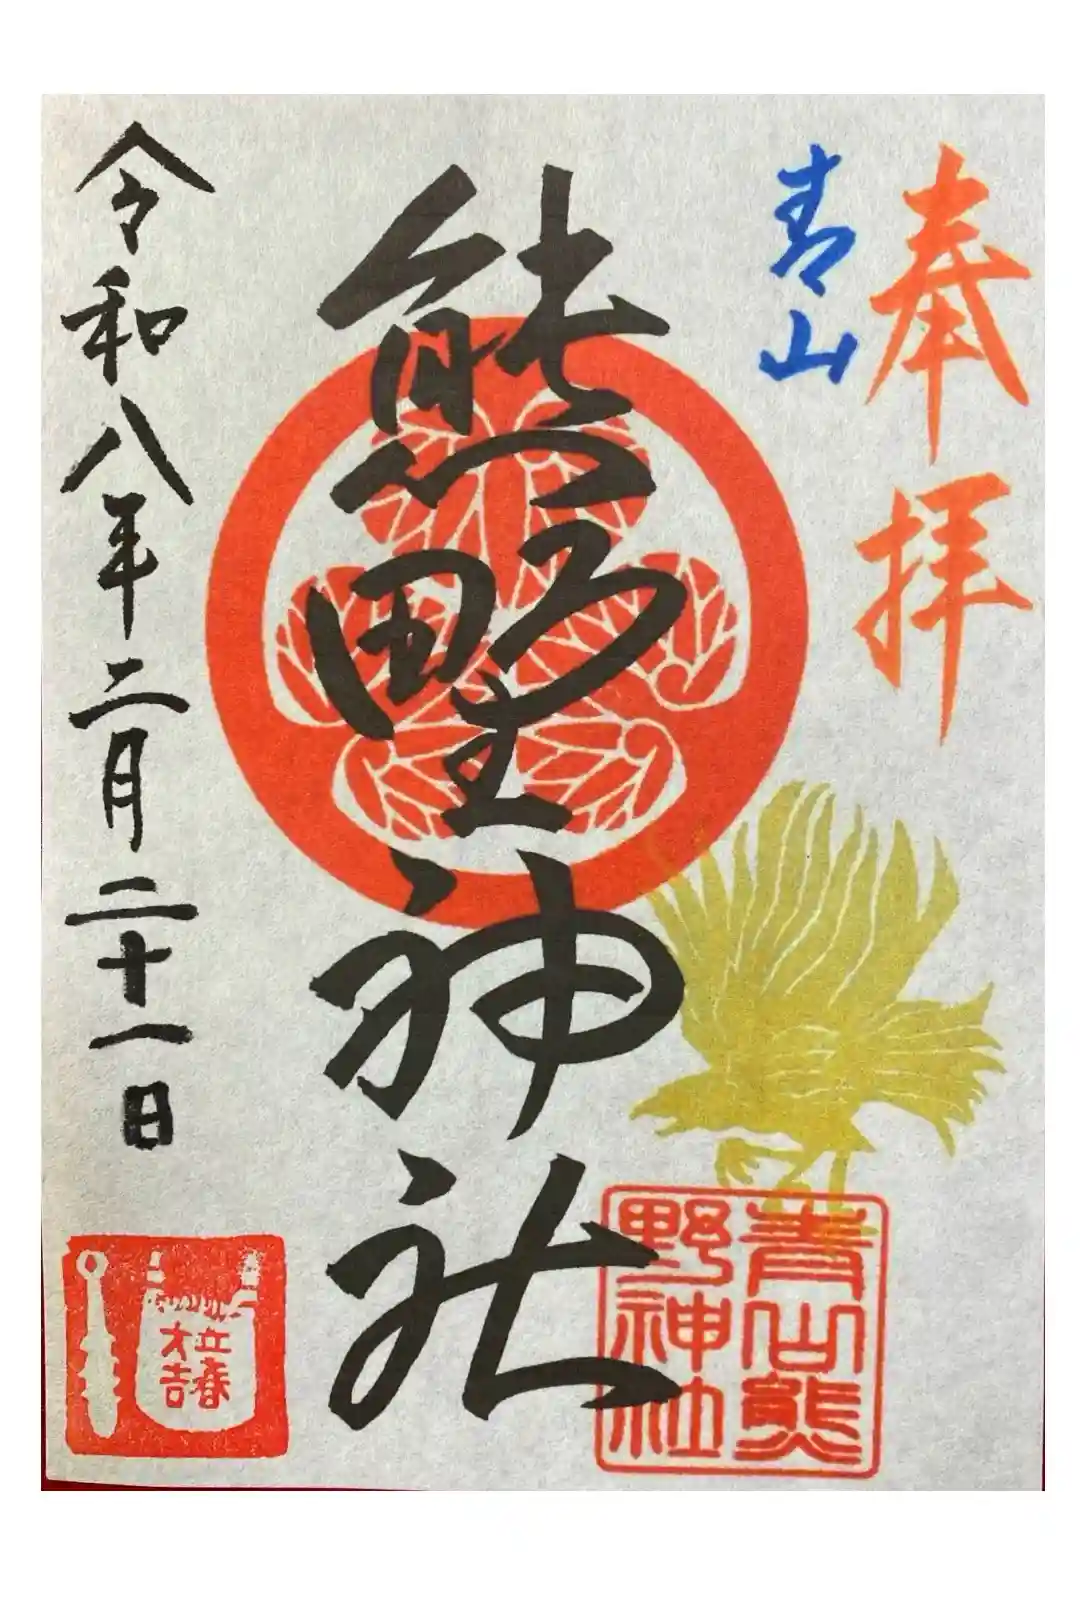 奉拝
青山
熊野神社
令和八年二月二十一日
青山熊
野神社
立春
大吉